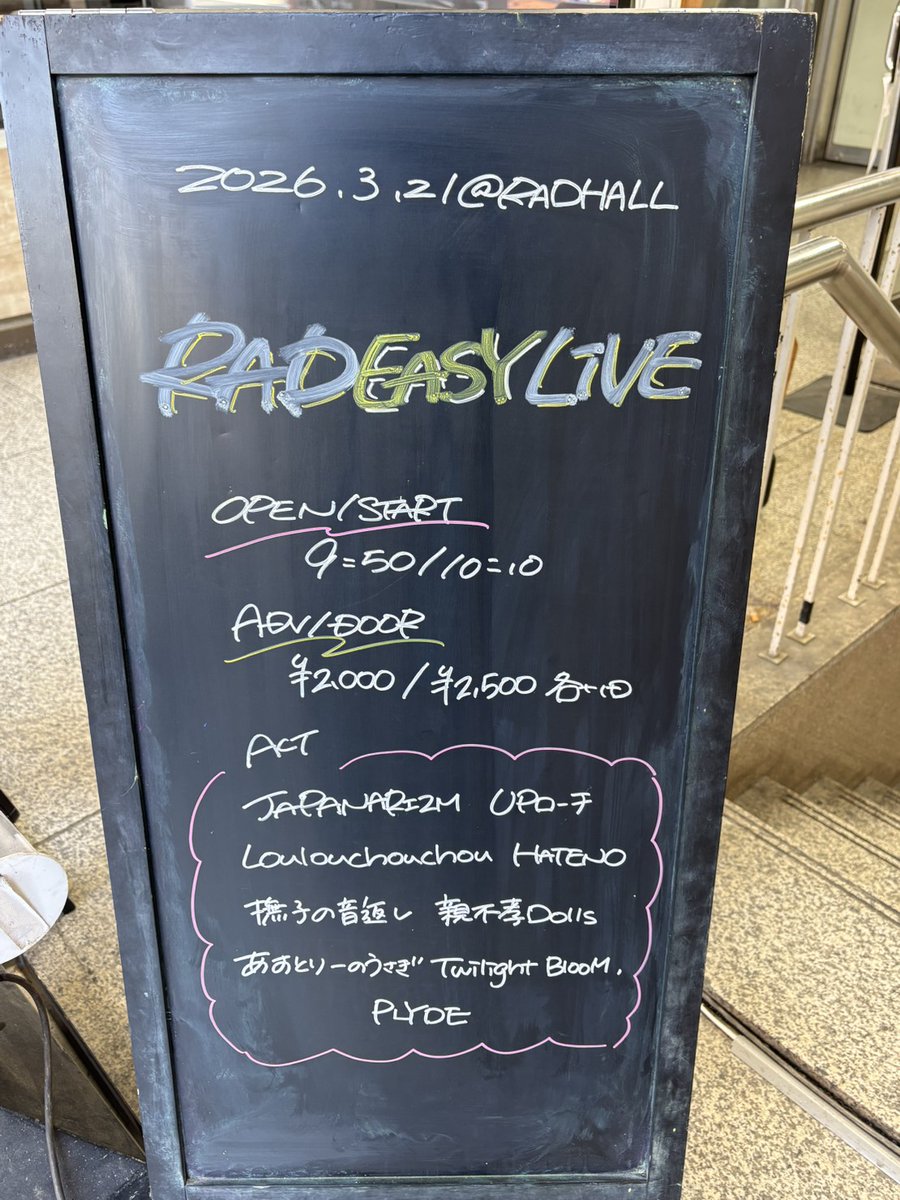 2026.3.21@RADHALL
RADEASYLIVE
OPEN/START
9=50/10=10
ADV/DOOR
¥2,000/¥2,500 各+1D
ACT
JAPANARIZM UPロ-チ
Loulouchouchou HATENO
撫子の音返し 親不孝Dolls
あすとりーのうさぎ Twilight BlooM.
PLYDE